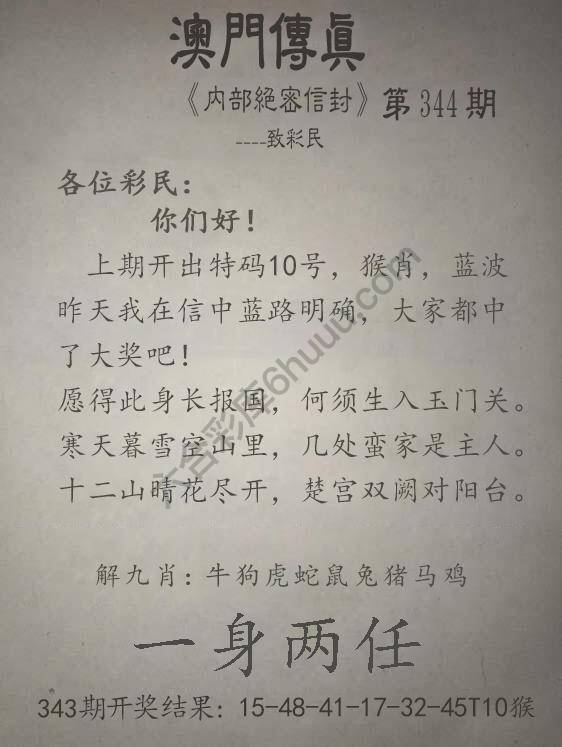 澳門傳眞
《内部絕密信封》第344期
----致彩民
各位彩民：
你们好！
上期开出特码10号，猴肖，蓝波
昨天我在信中蓝路明确，大家都中
了大奖吧！
愿得此身长报国，何须生入玉门关。
寒天暮雪空山里，几处蛮家是主人。
十二山晴花尽开，楚宫双阙对阳台。
解九肖：牛狗虎蛇鼠兔猪马鸡
一身两任
343期开奖结果：15-48-41-17-32-45T10猴
六合彩库6huuu.com